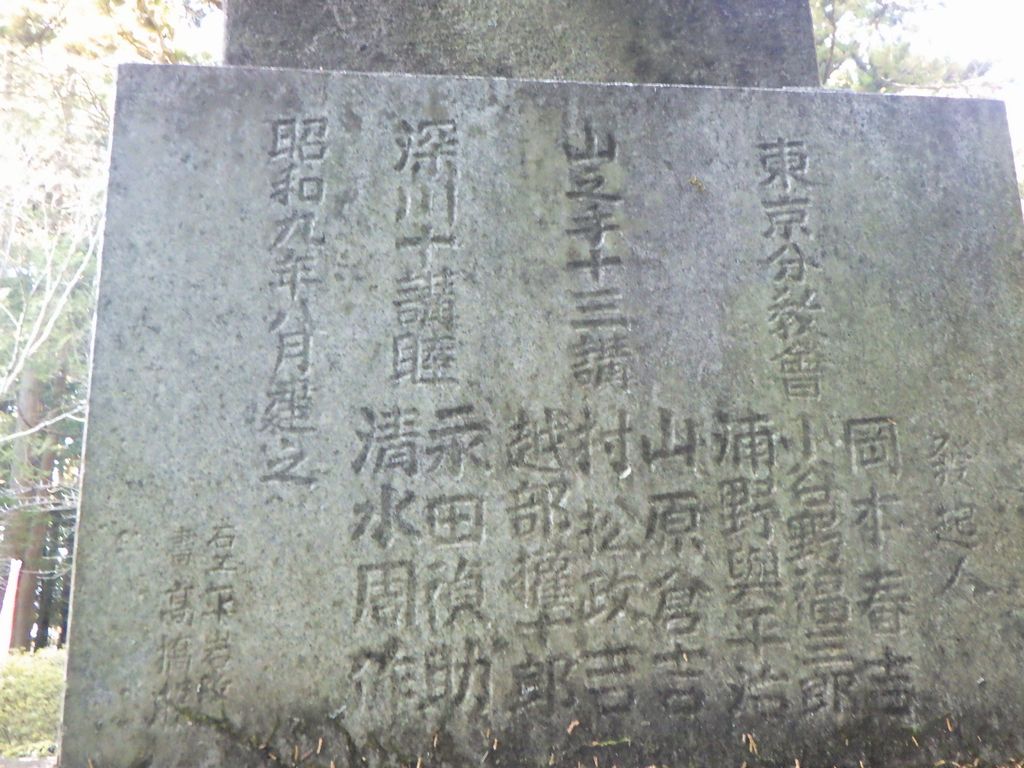 發起人
岡本春吉
東京分教會
小谷野福三郎
浦野與平治
山原倉吉
山之手十三講
村松政吉
越部僊十郎
永田禎助
深川十講睦
清水周作
昭和九年八月建之
石工
書 髙橋